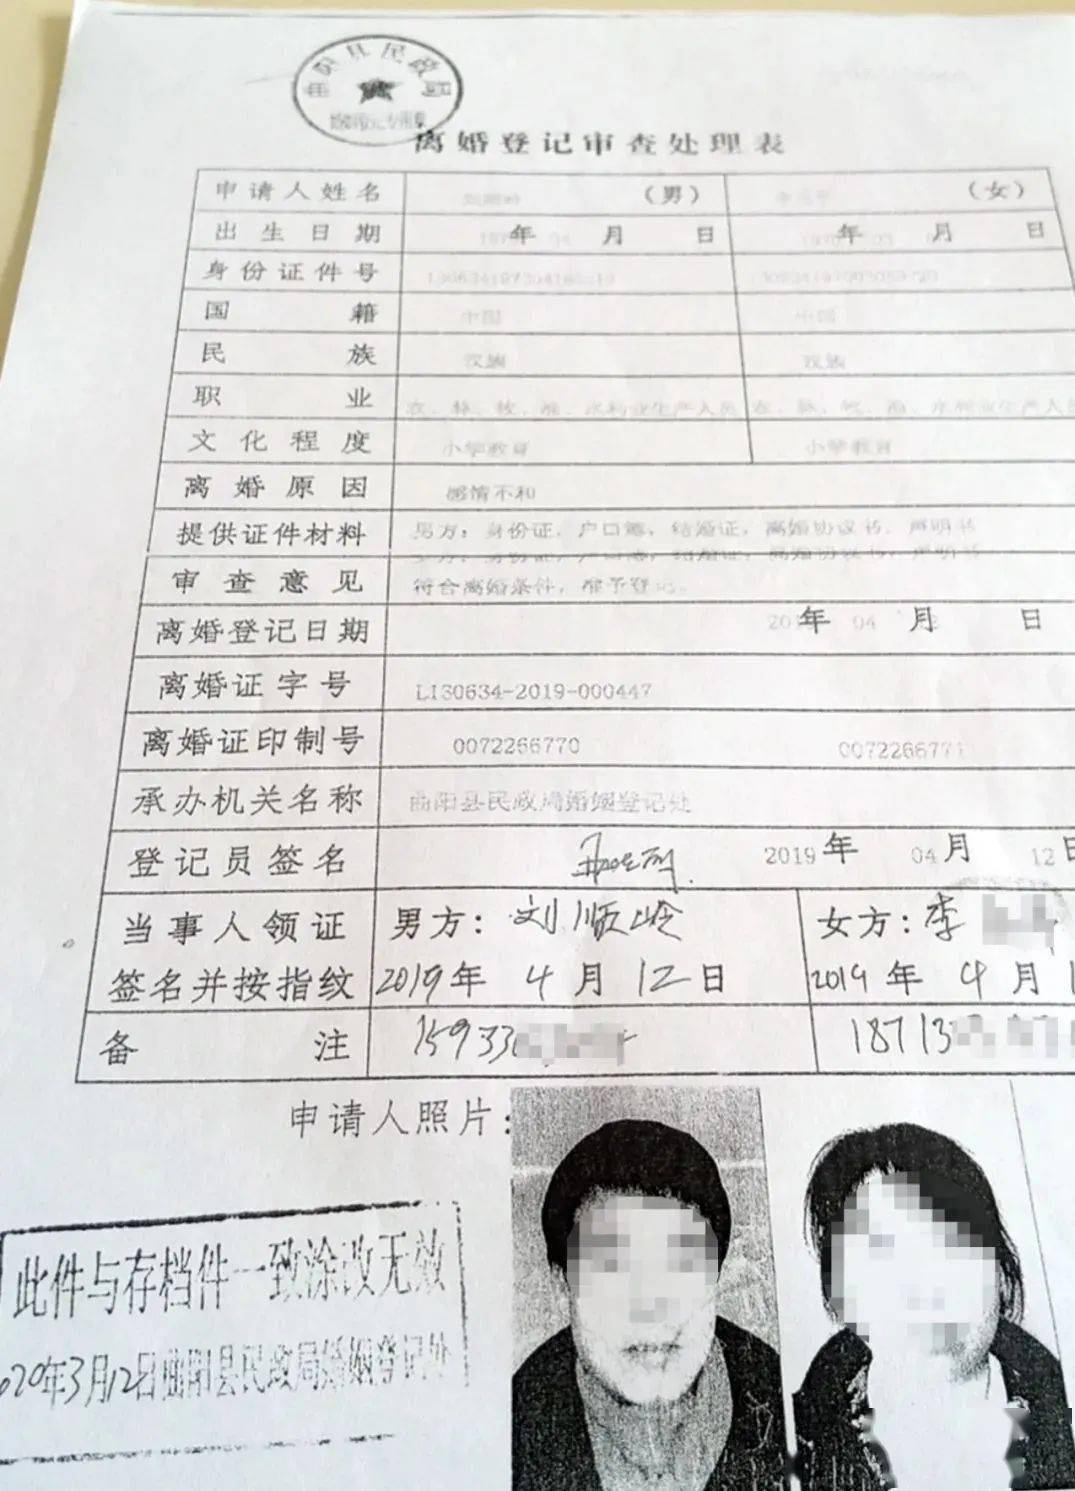 曲阳县民政局
离婚登记审查处理表
申请人姓名 （男） （女）
出生日期 年 月 日 年 月 日
身份证件号
国籍 中国 中国
民族 汉族 汉族
职业 农、林、牧、渔、水利业生产人员 农、林、牧、渔、水利业生产人员
文化程度 小学教育 小学教育
离婚原因 感情不和
提供证件材料 男方：身份证，户口簿，结婚证，离婚协议书，声明书
女方：身份证，户口簿，结婚证，离婚协议书，声明书
审查意见 符合离婚条件，准予登记。
离婚登记日期 年 04 月 日
离婚证字号 L130634-2019-000447
离婚证印制号 0072266770 0072266771
承办机关名称 曲阳县民政局婚姻登记处
登记员签名 2019 年 04 月 12 日
当事人领证 男方：刘顺岭 女方：李
签名并按指纹 2019年 4 月 12 日 2019 年 4 月 1
备注 15933 18713
申请人照片：
此件与存档件一致涂改无效
020年3月12日曲阳县民政局婚姻登记处